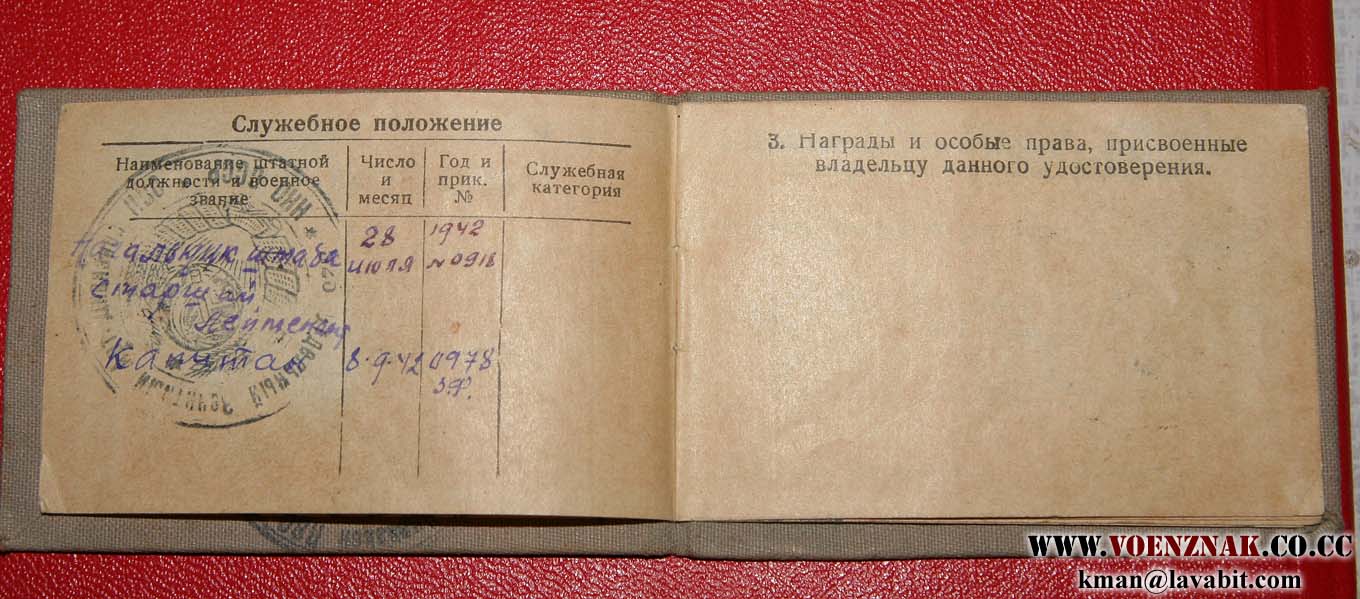 Служебное положение
Наименование штатной
должности и военное
звание
Число
и
месяц
Год и
прик.
№
Служебная
категория
Начальник штаба
28
июля
1942
№ 0918
старший
лейтенант
Капитан
8.9.42
0978
3. Награды и особые права, присвоенные
владельцу данного удостоверения.
НКО СССР
Отдельный Зенитный
WWW.VOENZNAK.CO.CC
kman@lavabit.com